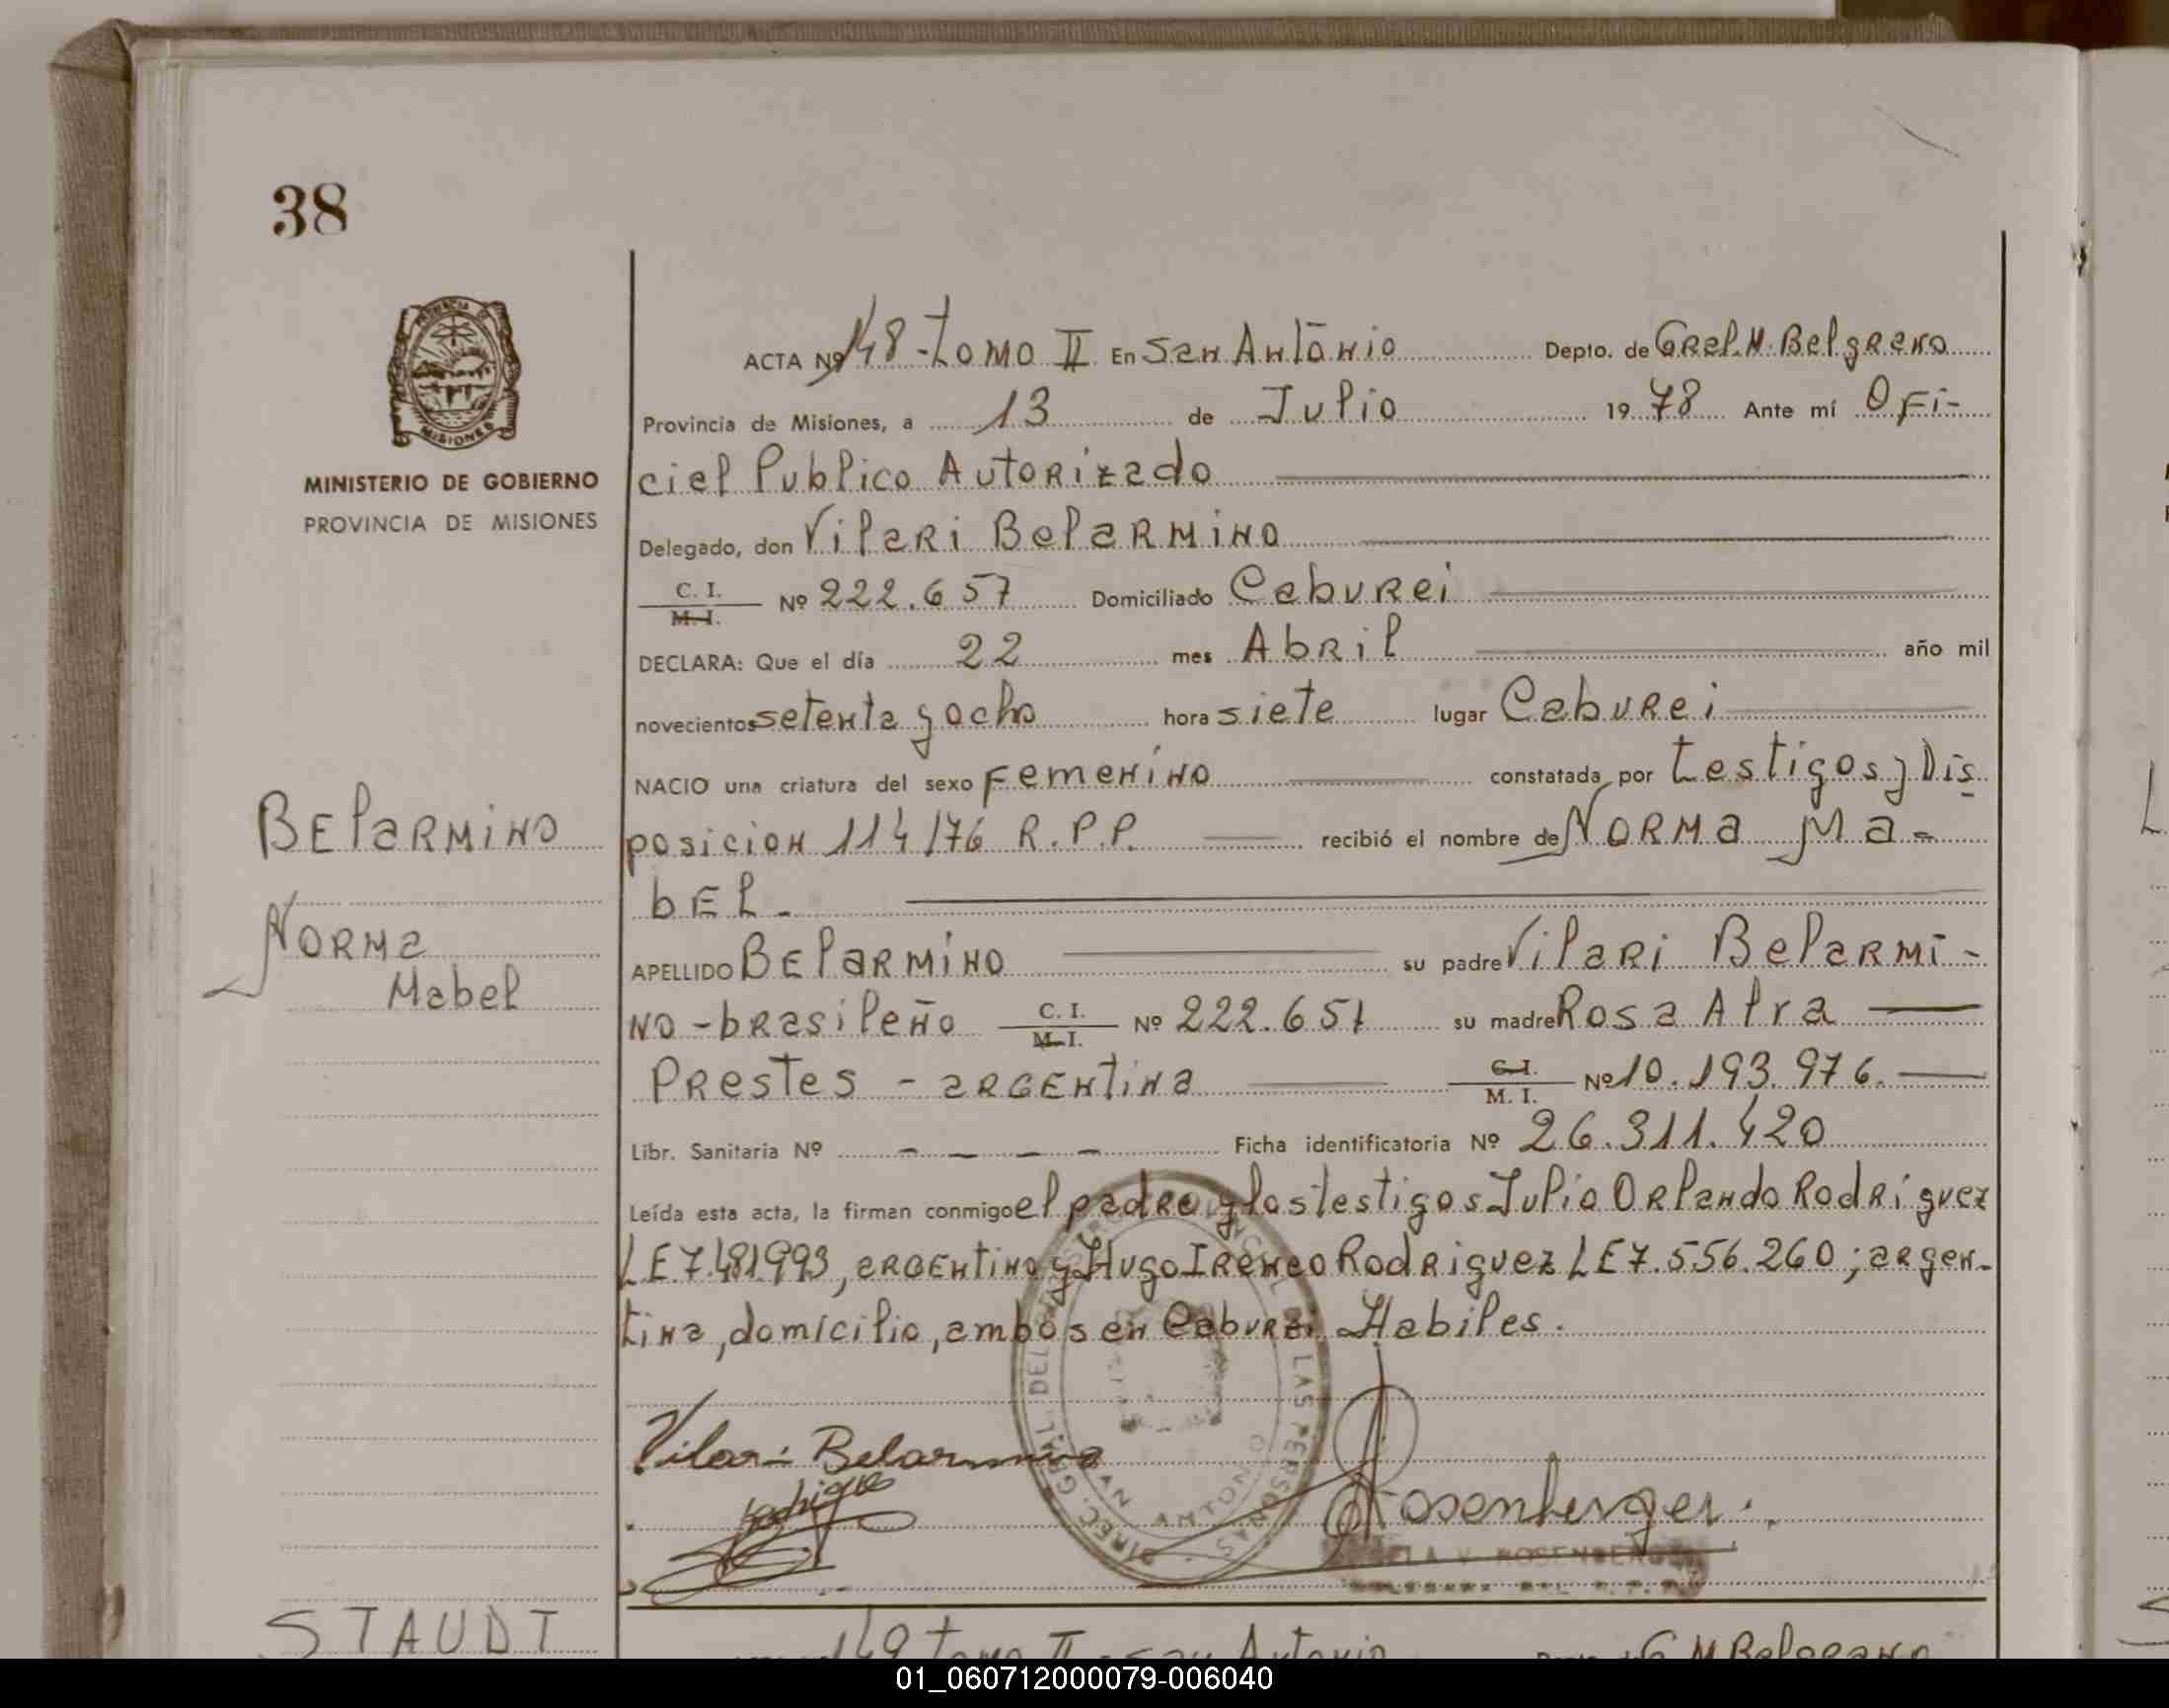 38
MINISTERIO DE GOBIERNO
PROVINCIA DE MISIONES
ACTA Nº 148-Tomo II En San Antonio Depto. de Gral. M. Belgrano
Provincia de Misiones, a 13 de Julio 1978 Ante mí Ofi-
cial Publico Autorizado
Delegado, don Vilari Belarmino
C. I.
M. I. Nº 222.657 Domiciliado Caburei
DECLARA: Que el día 22 mes Abril año mil
novecientos setenta y ocho hora siete lugar Caburei
NACIO una criatura del sexo Femenino constatada por testigos y Dis
posicion 114/76 R.P.P. recibió el nombre de NORMA Ma=
bEl-
APELLIDO BElARMINO su padre Vilari Belarmi-
no-brasileño C. I.
M. I. Nº 222.657 su madre Rosa Alra
Prestes - argentina C. I.
M. I. Nº 10.193.976.
Libr. Sanitaria Nº - - - - Ficha identificatoria Nº 26.311.420
Leída esta acta, la firman conmigo el padre y los testigos Julio Orlando Rodriguez
LE 7.481.993, argentino y Hugo Ireneo Rodriguez LE 7.556.260; argen-
tina, domicilio, ambos en Caburei Habiles.
Vilari Belarmino
Rodrigue
Rosenberger
V. ROSENBERGER
DIREC. GRAL. DEL REG. PROVINCIAL DE LAS PERSONAS
SAN ANTONIO
BElARMINO
NORMA
Mabel
STAUDT
149 Tomo II - San Antonio G. M. Belgrano
01_060712000079-006040